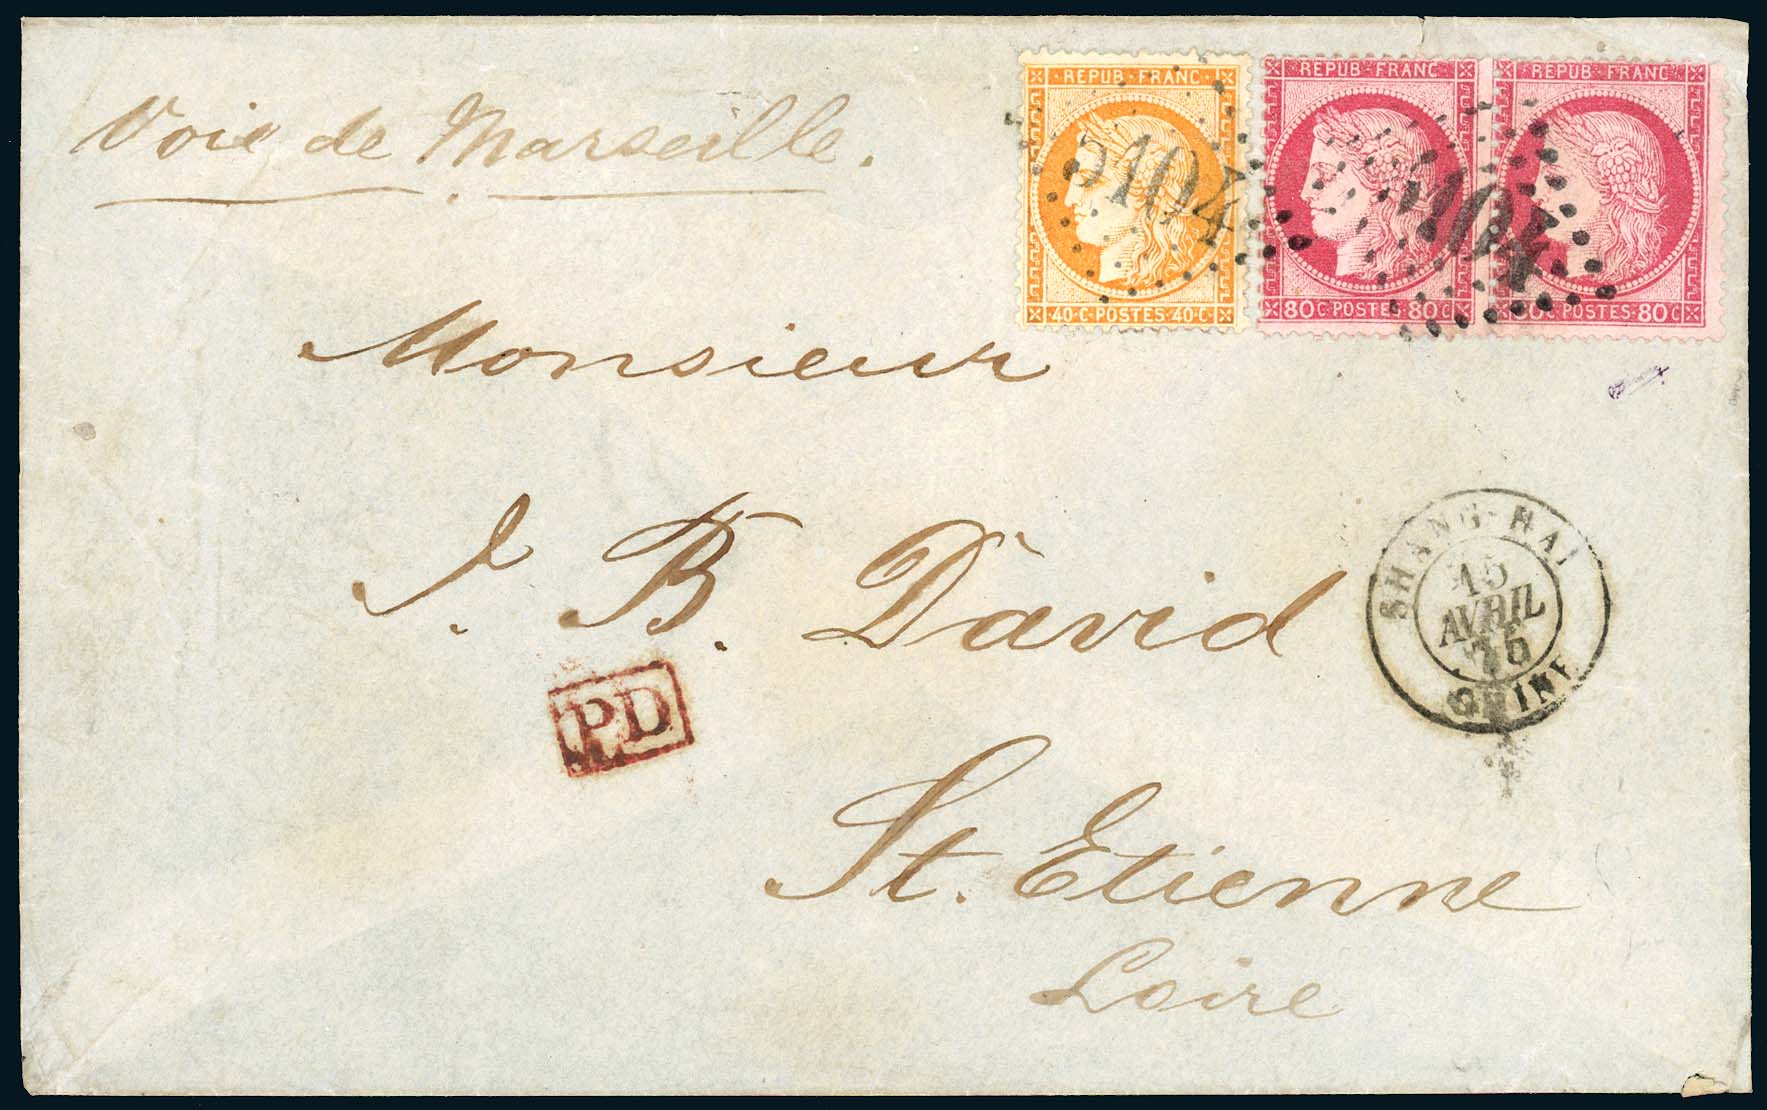 Voie de Marseille.
REPUB FRANC
40 C POSTES 40 C
REPUB FRANC
80 C POSTES 80 C
REPUB FRANC
80 C POSTES 80 C
5104
5104
Monsieur
J. B. David
St. Etienne
Loire
P.D
SHANG-HAI
15
AVRIL
75
CHINE